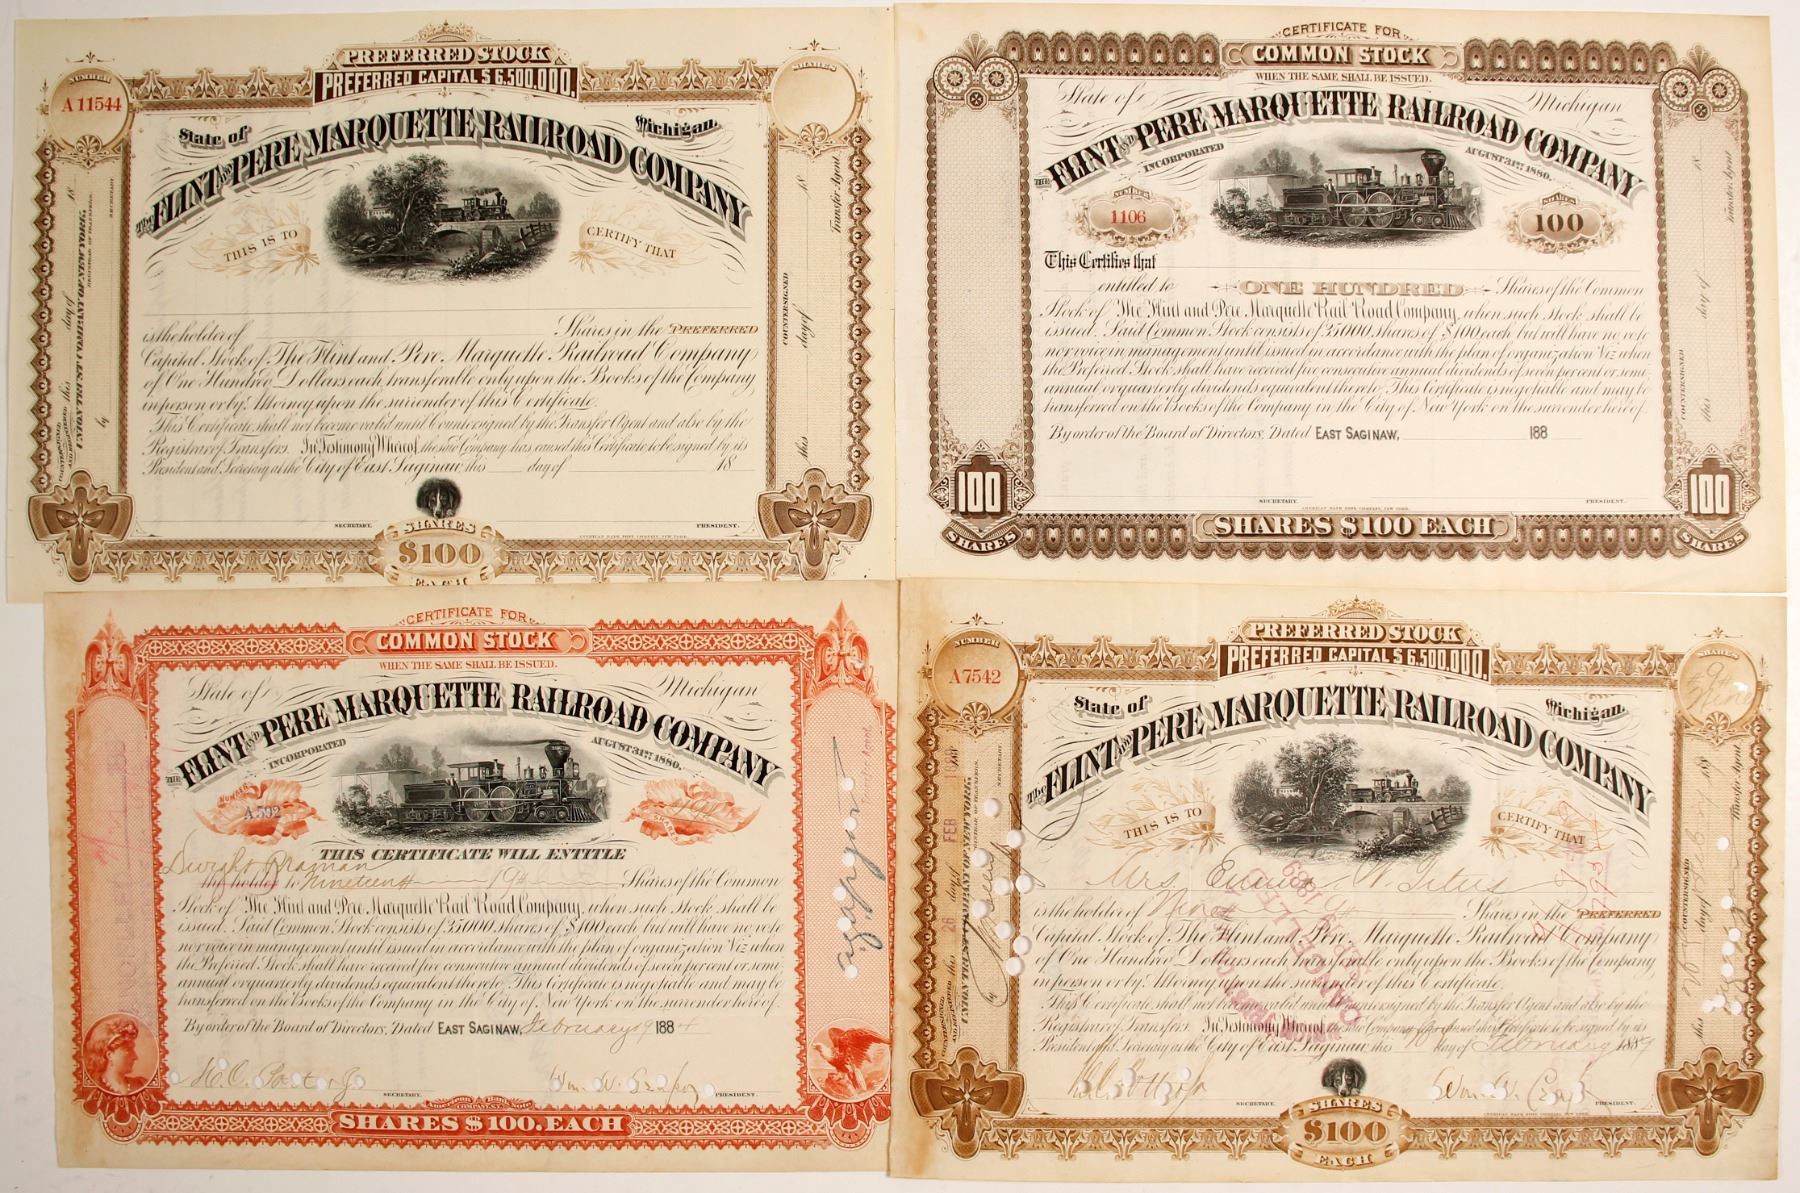 PREFERRED STOCK
PREFERRED CAPITAL $ 6,500,000.
NUMBER
A 11544
SHARES
State of Michigan.
The FLINT AND PERE MARQUETTE RAILROAD COMPANY
THIS IS TO CERTIFY THAT
is the holder of Shares in the PREFERRED
Capital Stock of The Flint and Pere Marquette Railroad Company
of One Hundred Dollars each transferable only upon the Books of the Company
in person or by Attorney upon the surrender of this Certificate.
This Certificate shall not become valid until Countersigned by the Transfer Agent and also by the
Registrar of Transfers. In Testimony Whereof, the said Company has caused this Certificate to be signed by its
President and Secretary at the City of East Saginaw, this day of 18
SECRETARY. PRESIDENT.
AMERICAN BANK NOTE COMPANY, NEW YORK.
SHARES
$100
EACH
COUNTERSIGNED AND REGISTERED this day of 18
UNION TRUST COMPANY OF NEW YORK,
REGISTRAR OF TRANSFERS.
by SECRETARY
COUNTERSIGNED
this day of 18
Transfer Agent.
CERTIFICATE FOR
COMMON STOCK
WHEN THE SAME SHALL BE ISSUED.
State of Michigan
THE FLINT AND PERE MARQUETTE RAILROAD COMPANY
INCORPORATED AUGUST 31ST, 1880.
NUMBER
1106
SHARES
100
This Certifies that
entitled to ONE HUNDRED Shares of the Common
Stock of "The Flint and Pere Marquette Rail Road Company, when such Stock shall be
issued. Said Common Stock consists of 35000 shares of $100 each but will have no vote
nor voice in management until issued in accordance with the plan of organization Viz when
the Preferred Stock shall have received five consecutive annual dividends of seven per cent or semi
annual or quarterly dividends equivalent thereto. This Certificate is negotiable and may be
transferred on the Books of the Company in the City of New York on the surrender hereof.
By order of the Board of Directors, Dated EAST SAGINAW, 188
SECRETARY. PRESIDENT.
AMERICAN BANK NOTE COMPANY, NEW YORK.
100
SHARES
SHARES $100 EACH
100
SHARES
COUNTERSIGNED
this day of 18
Transfer Agent
CERTIFICATE FOR
COMMON STOCK
WHEN THE SAME SHALL BE ISSUED.
State of Michigan
THE FLINT AND PERE MARQUETTE RAILROAD COMPANY
INCORPORATED AUGUST 31ST, 1880.
NUMBER
A 592
SHARES
THIS CERTIFICATE WILL ENTITLE
Dwight Braman
the holder to Nineteen 19 Shares of the Common
Stock of "The Flint and Pere Marquette Rail Road Company, when such Stock shall be
issued. Said Common Stock consists of 35000 shares of $100 each but will have no vote
nor voice in management until issued in accordance with the plan of organization Viz when
the Preferred Stock shall have received five consecutive annual dividends of seven per cent or semi
annual or quarterly dividends equivalent thereto. This Certificate is negotiable and may be
transferred on the Books of the Company in the City of New York on the surrender hereof.
By order of the Board of Directors, Dated EAST SAGINAW, February 9 1884
H.C. Potter Jr
Wm. W. Crapo
SECRETARY. PRESIDENT.
American Bank Note
COMPANY
SHARES $ 100. EACH
Agent
PREFERRED STOCK
PREFERRED CAPITAL $ 6,500,000.
NUMBER
A 7542
SHARES
9
State of Michigan.
The FLINT AND PERE MARQUETTE RAILROAD COMPANY
THIS IS TO CERTIFY THAT
Mrs. Emma W. Titus
is the holder of Nine 9 Shares in the PREFERRED
Capital Stock of The Flint and Pere Marquette Railroad Company
of One Hundred Dollars each transferable only upon the Books of the Company
in person or by Attorney upon the surrender of this Certificate.
This Certificate shall not become valid until Countersigned by the Transfer Agent and also by the
Registrar of Transfers. In Testimony Whereof, the said Company has caused this Certificate to be signed by its
President and Secretary at the City of East Saginaw, this day of February 1889
H.C. Potter Jr
Wm. W. Crapo
SECRETARY. PRESIDENT.
AMERICAN BANK NOTE COMPANY, NEW YORK.
SHARES
$100
EACH
COUNTERSIGNED AND REGISTERED this 26 day of FEB
UNION TRUST COMPANY OF NEW YORK,
REGISTRAR OF TRANSFERS.
by SECRETARY
CANCELLED
1889
COUNTERSIGNED
this 26 day of Feb 188
Transfer Agent